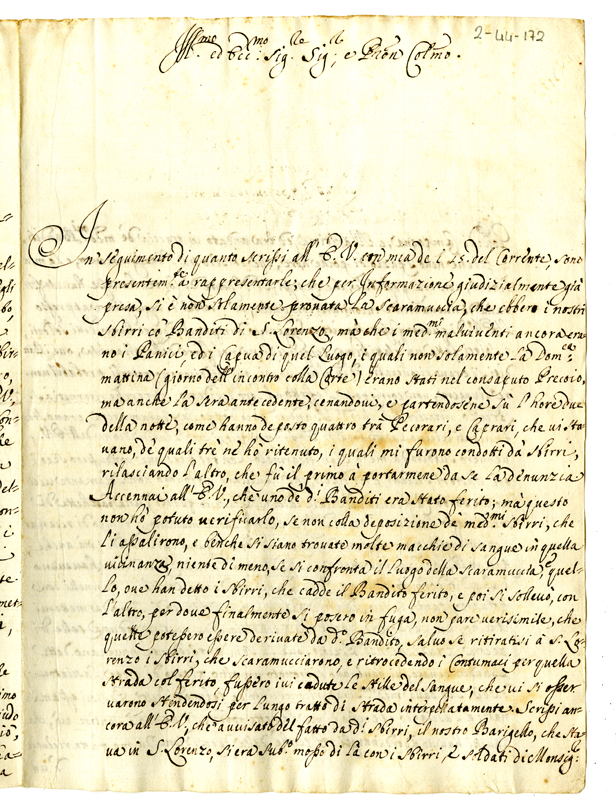 2-44-172
Ill.mo ed Ecc.mo Sig.re Sig.re, e Pron Col.mo.
In seguimento di quanto scrissi all' E.V. con mia de i 25. del Corrente, sono
presentem.te à rappresentarle, che per Informazione giudizialmente già
presa, si è non solamente provata La Scaramuccia, che ebbero i nostri
Sbirri cõ Banditi di S. Lorenzo, mà che i med.mi malviventi ancora era-
no i Panici, ed i Capua di quel Luogo, i quali non solamente La Dom.ca
mattina (giorno dell' incontro colla Corte) erano Stati nel consaputo Precoio,
ma anche La sera antecedente, cenandovi, e partendosene sù l'hore due
della notte, come hanno deposto quattro trà Pecorari, e Caprari, che vi sta-
vano, de quali trè nè hò ritenuto, i quali mi furono condotti dà Sbirri,
rilasciando L'altro, che fù il primo à portarmene da se La denunzia
Accennai all' E.V., che uno de d.i Banditi era Stato ferito; mà questo
non hò potuto verificarlo, se non colla deposizione de med.mi Sbirri, che
Li assalirono, e benche si siano trovate molte macchie di sangue in quella
vicinanza, niente di meno, se si confronta il Luogo della Scaramuccia, quel-
Lo, ove han detto i Sbirri, che cadde il Bandito ferito, e poi si sollevò, con
L'altro, per dove finalmente si posero in fuga, non pare verisimile, che
quelle potessero essere derivate da d.o Bandito, salvo se ritiratisi à S. Lo-
renzo i Sbirri, che scaramucciarono, e ritrocedendo i Contumaci per quella
Strada col ferito, fussero ivi cadute Le stille del sangue, che vi si osser-
varono stendendosi per Lungo tratto di Strada interpolatamente. Scrissi an-
cora all' E.V., che avvisato del fatto da d.i Sbirri, il nostro Barigello, che sta-
va in S. Lorenzo, si era sub.o mosso di La con i Sbirri, e soldati di Monsig.r